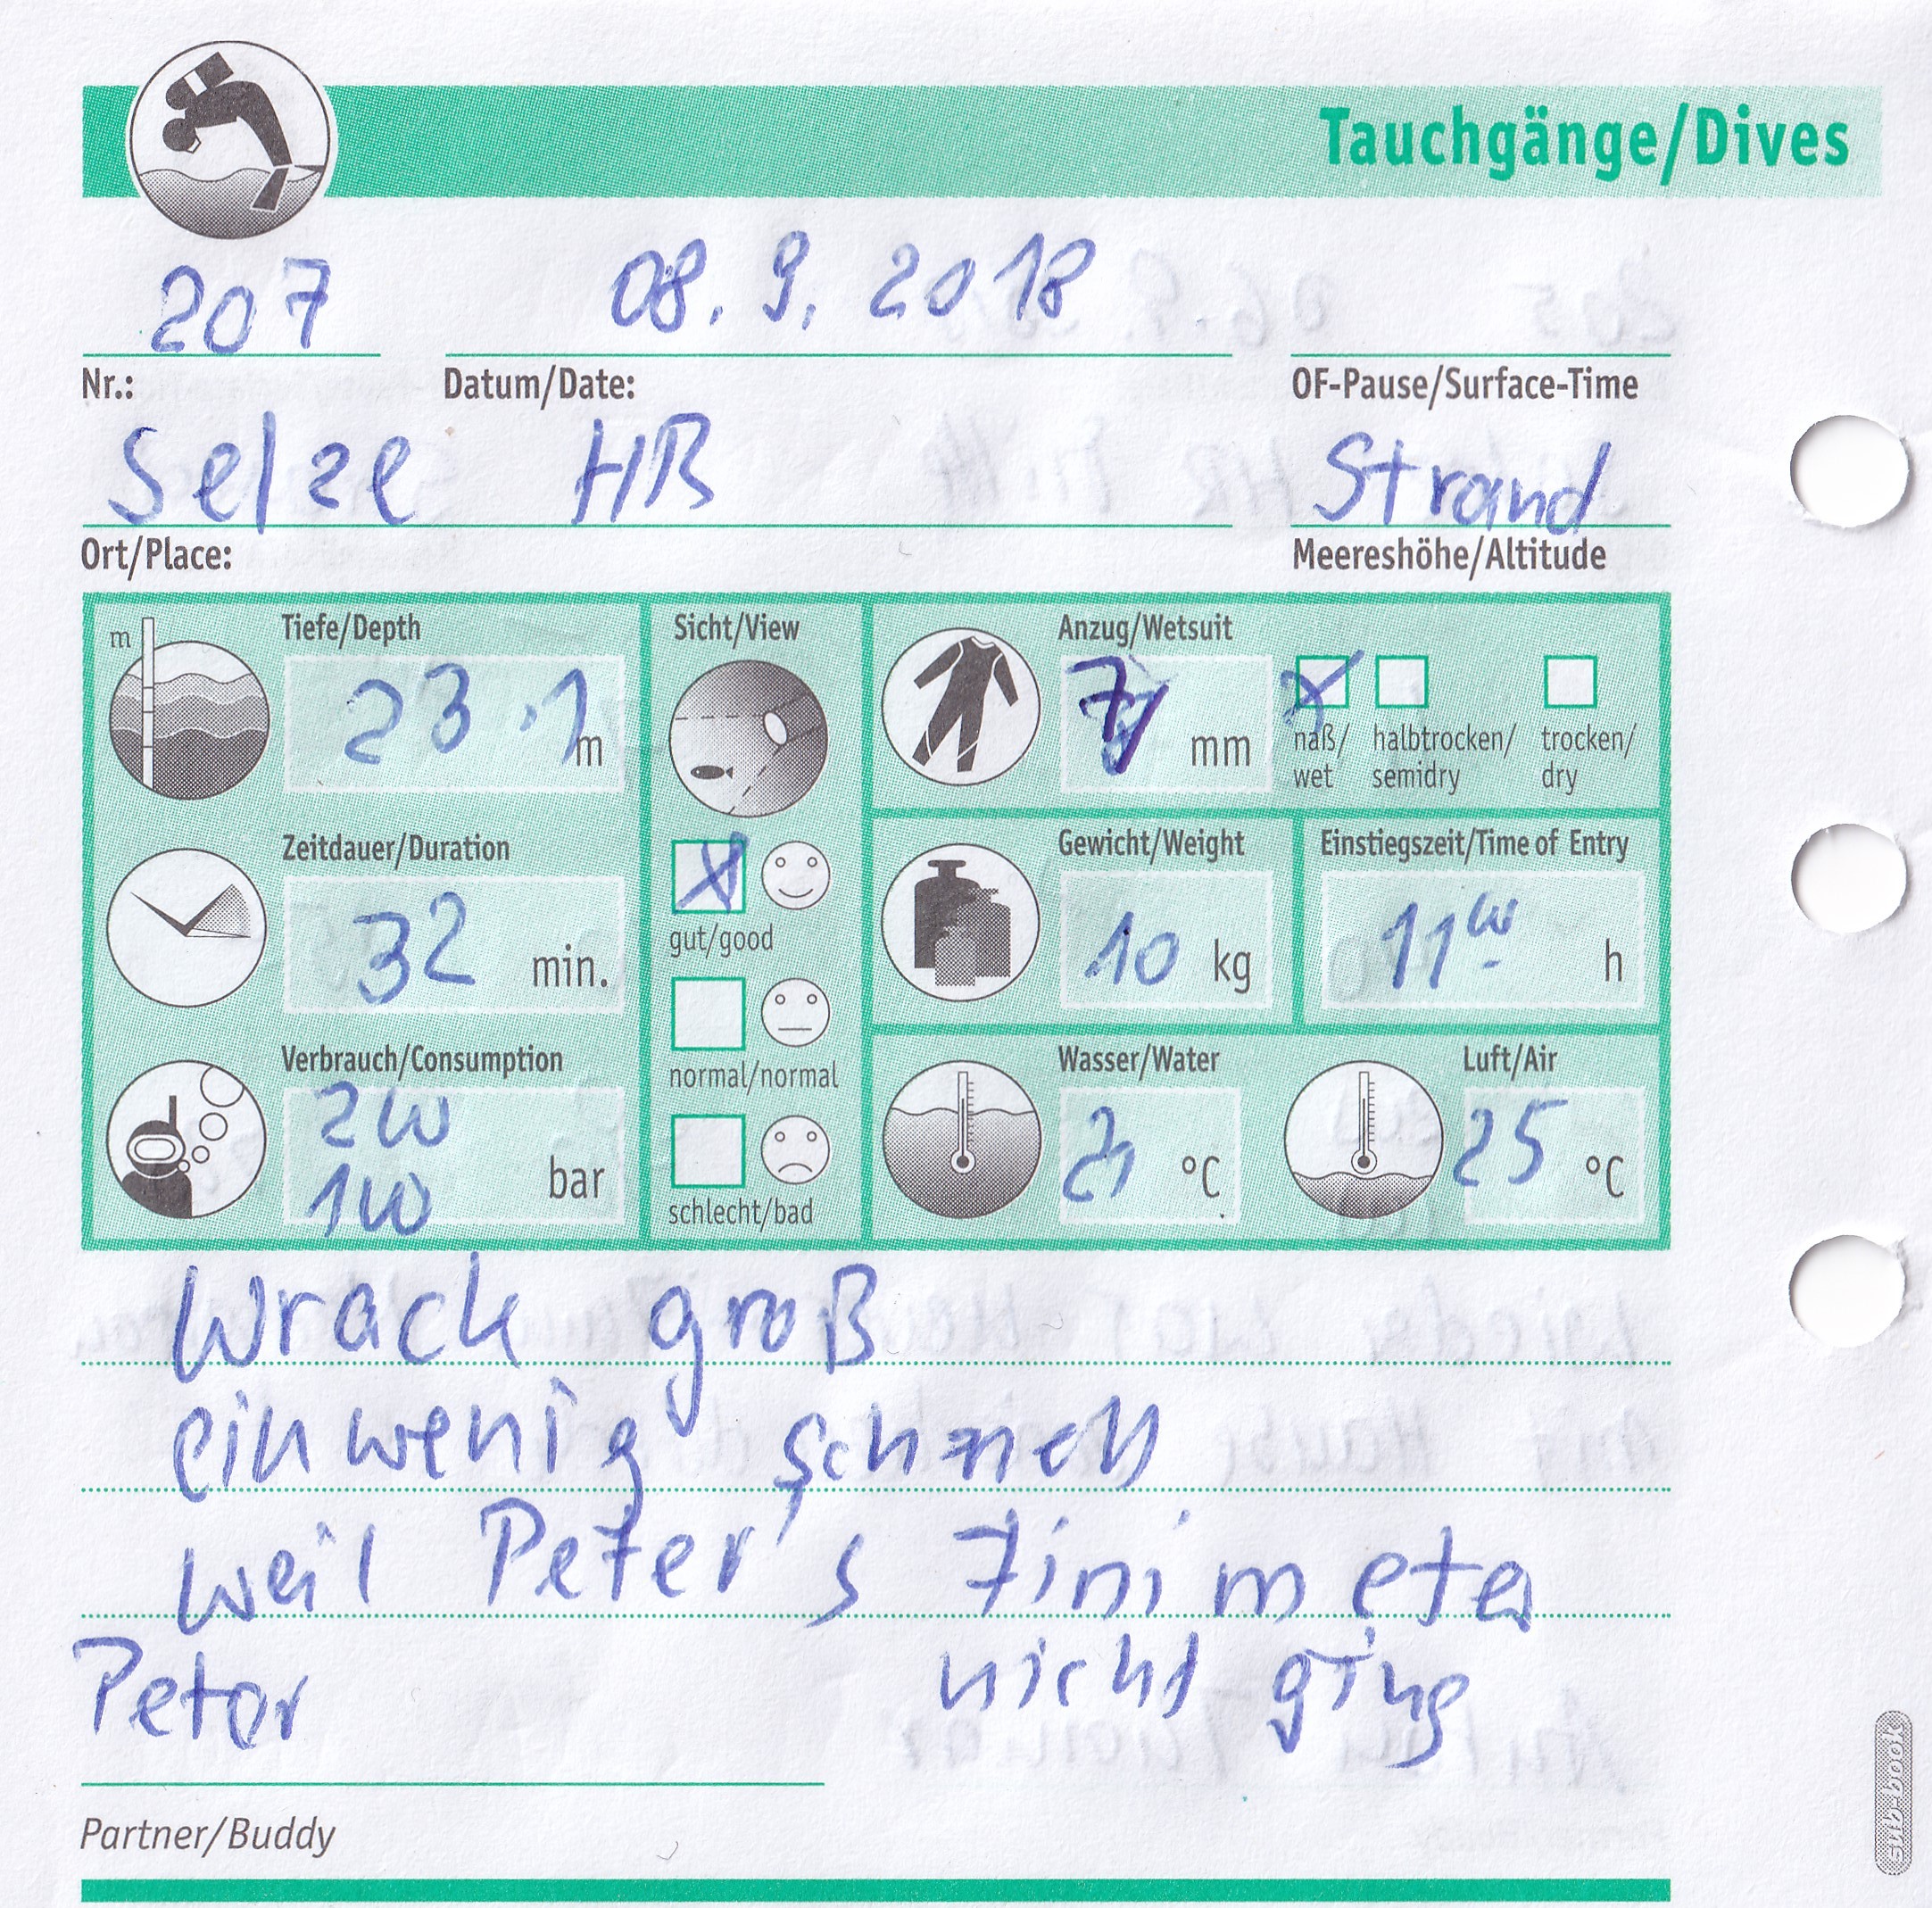 Tauchgänge/Dives
207 08.9.2018
Nr.: Datum/Date: OF-Pause/Surface-Time
Selze HB Strand
Ort/Place: Meereshöhe/Altitude
m Tiefe/Depth Sicht/View Anzug/Wetsuit
23.1 m 7 mm
naß/ halbtrocken/ trocken/
wet semidry dry
Zeitdauer/Duration Gewicht/Weight Einstiegszeit/Time of Entry
32 min. gut/good 10 kg 11 00 h
Verbrauch/Consumption normal/normal Wasser/Water Luft/Air
200
100 bar 21 °C 25 °C
schlecht/bad
Wrack groß
ein wenig schnell
weil Peter's Finimeter
Peter nicht ging
Partner/Buddy
sub-book